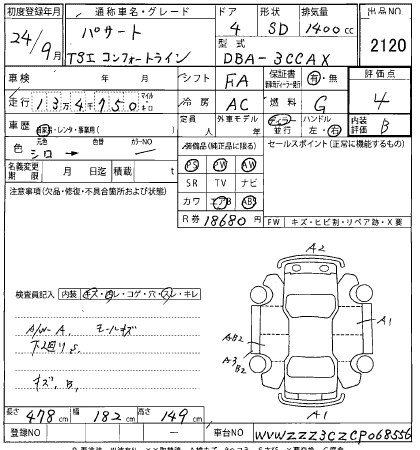 初度登録年月 通称車名・グレード ドア 形状 排気量 出品NO
24/9月 パサート 4 SD 1400cc 2120
TSI コンフォートライン 型式 DBA-3CCAX
車検 年 月 シフト FA 保証書 有・無 評価点
走行 13万4千750 マイル キロ 冷房 AC 燃料 G 4
車歴 自家用・レンタ・事業用( ) 定員 人 外車モデル 年 ディーラ 並行 ハンドル 左・右 内装評価 B
色 元色 シロ → 色替 カラーNO 装備品(純正品に限る) セールスポイント(正常に機能するもの)
名義変更期限 月 日迄 積載 t PS PW AW
注意事項(欠品・修復・不具合箇所および状態) SR TV ナビ
カワ エアB ABS
R券 18680円 FW キズ・ヒビ割・リペア跡・X要
A2
検査員記入 内装 キズ・ヨレ・コゲ・穴・スレ・キレ
A/W-A. モールキズ A1
下廻りS. AB2
A3 B2
キズ、B,
長さ 478cm 幅 182cm 高さ 149cm A1
登録NO 車台NO WVWZZZ3CZCP068556